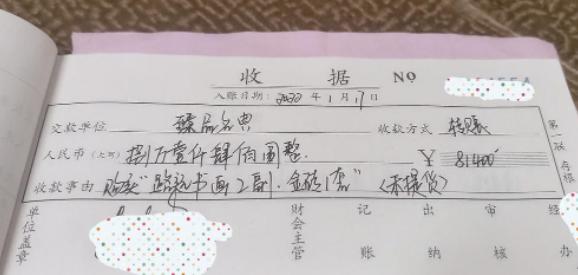 收 据 NO
入账日期：2022 年 1 月 17 日
交款单位 臻品名典 收款方式 转账
人民币（大写） 捌万壹仟肆佰圆整 ¥ 81400
收款事由 购买“ 书画2副、金砖1套”（未提货）
第一联 存根
单位盖章 财会主管 记账 出纳 审核 经办